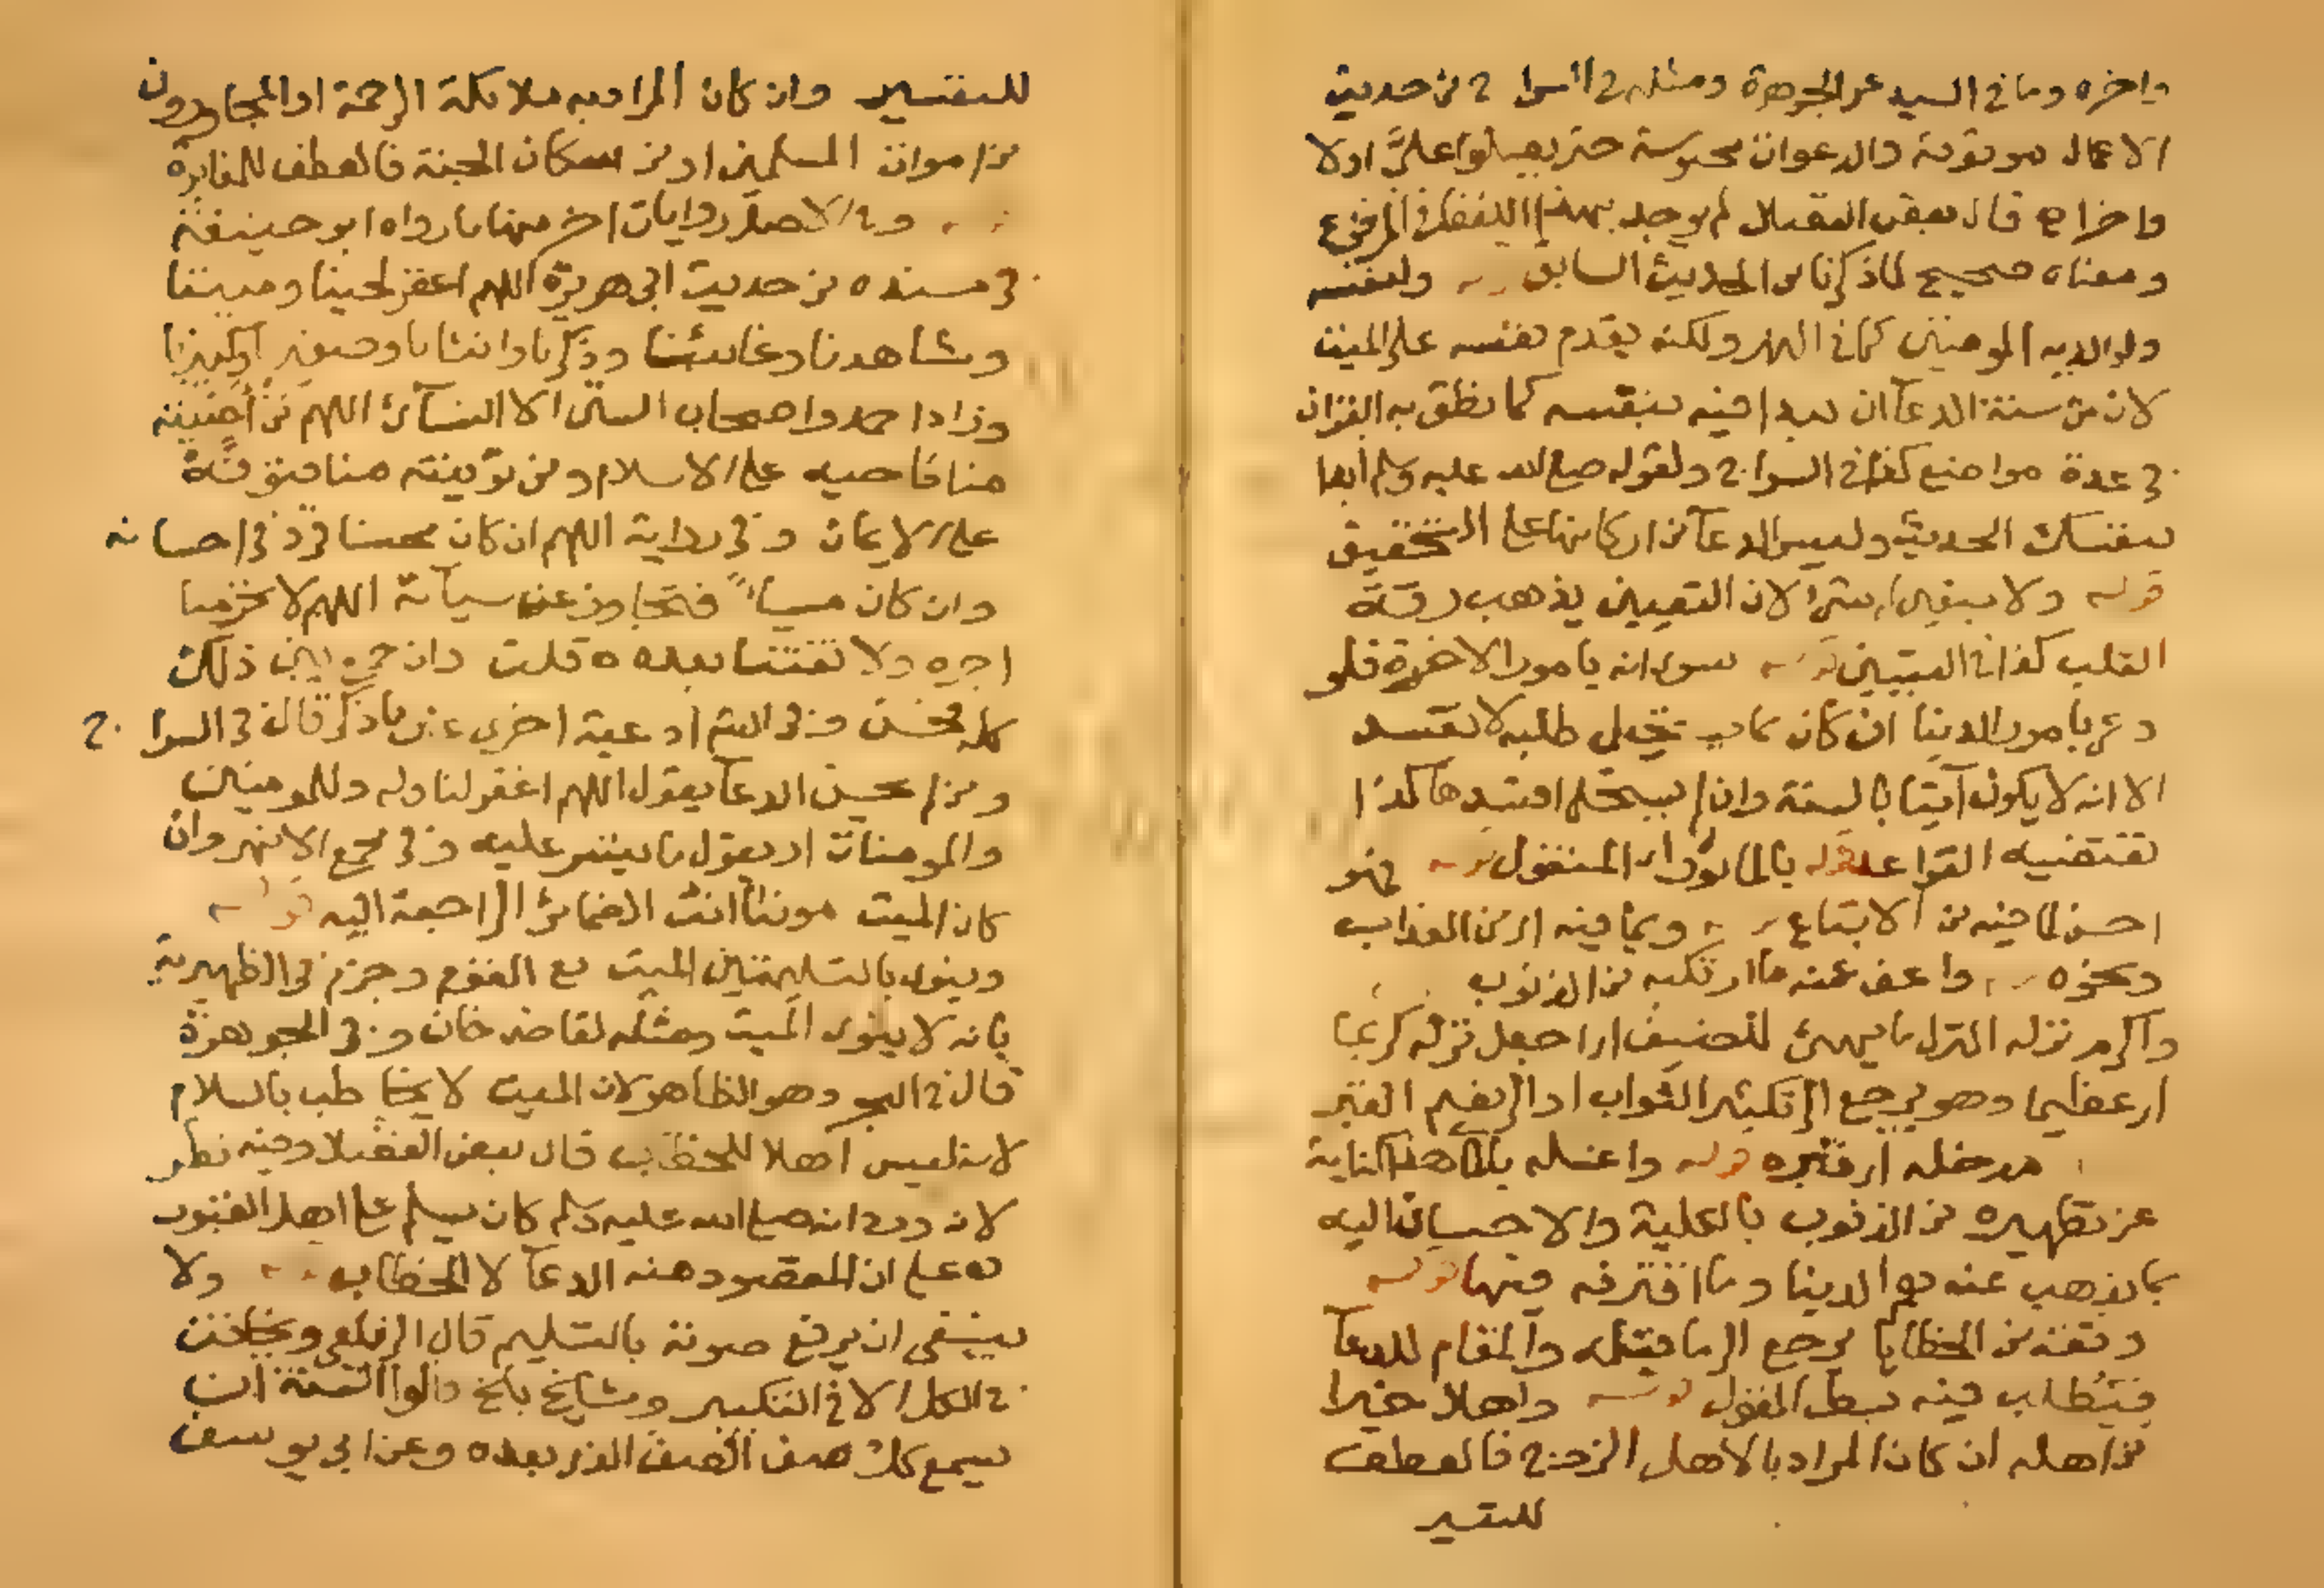 واخره وما في السيد عن الجوهرة ومثله في السراج من حديث
الاعمال موقوفة والدعوات محبوسة حتى يصلوا على اولا
واخرا ه قال بعض الفضلا لم يوجد بهذا اللفظ في المرفوع
ومعناه صحيح لما ذكرنا من الحديث السابق ولنفسه
ولوالديه المومنين كما في النهر ولكنه يقدم نفسه على الميت
لان من سنة الدعآ ان يبدا فيه بنفسه كما نطق به القران
في عدة مواضع كذا في السراج ولقوله صلى الله عليه وسلم ابدا
بنفسك الحديث وليس الدعآ من اركانها على التحقيق
قوله ولا يتعين له شئ لان التعيين يذهب رقة
القلب كذا في التبيين قوله سوى انه بامور الاخرة فلو
دعى بامور الدنيا ان كان مما يستحيل طلبه لا تفسد
الا انه لا يكون آتيا بالسنة وان لم يستحل افسدها كذا
تقتضيه القواعد قوله بالماثور اي المنقول قوله فهو
احسن لما فيه من الاتباع وبما فيه اي من العذاب
ونحوه واعف عنه ما ارتكبه من الذنوب
واكرم نزله النزل ما يهيئ للضيف اي اجعل نزله كريما
اي عظيما وهو يرجع الى تكثير الثواب او الى نعيم القبر
مدخله اي قبره قوله واغسله بالما هذا كناية
عن تطهيره من الذنوب بالكلية والاحسان اليه
بما يذهب عنه هم الدنيا وما اقترفه فيها قوله
ونقه من الخطايا يرجع الى ما قبله والمقام للدعآ
فيطلب فيه بسط القول قوله واهلا خيرا
من اهله ان كان المراد بالاهل الزوج فالعطف
للتفسير
للتفسير وان كان المراد به ملائكة الرحمة او المجاورون
من اموات المسلمين او من سكان الجنة فالعطف للمغايرة
وفي الاصل روايات اخر منها ما رواه ابو حنيفة
في مسنده من حديث ابي هريرة اللهم اغفر لحينا وميتنا
وشاهدنا وغائبنا وذكرنا وانثانا وصغيرنا وكبيرنا
وزاد احمد واصحاب السنن الا النسآئ اللهم من أحييته
منا فاحيه على الاسلام ومن توفيته منا فتوفه
على الايمان وفي رواية اللهم ان كان محسنا فزد في احسانه
وان كان مسيأ فتجاوز عن سيآته اللهم لا تحرمنا
اجره ولا تفتنا بعده ه قلت وان جمع بين ذلك
كله فحسن وفي الفتح ادعية اخرى غير ما ذكر قال في السراج
ومن لم يحسن الدعآ يقول اللهم اغفر لنا وله وللمومنين
والمومنات او يقول ما يتيسر عليه وفي مجمع الانهر وان
كان الميت مونثا انث الضمائر الراجعة اليه قوله
وينوى بالتسليمتين الميت مع القوم وجزم في الظهيرية
بانه لا ينوى الميت ومثله لقاضى خان وفي الجوهرة
قال في البحر وهو الظاهر لان الميت لا يخاطب بالسلام
لانه ليس اهلا للخطاب قال بعض الفضلا وفيه نظر
لانه ورد انه صلى الله عليه وسلم كان يسلم على اهل القبور
ه على ان المقصود منه الدعآ لا الخطاب ولا
ينبغى ان يرفع صوته بالتسليم قال الزيلعى ويخافت
في الكل الا في التكبير ومشايخ بلخ قالوا السنة ان
يسمع كل صف الصف الذى بعده وعن ابي يوسف